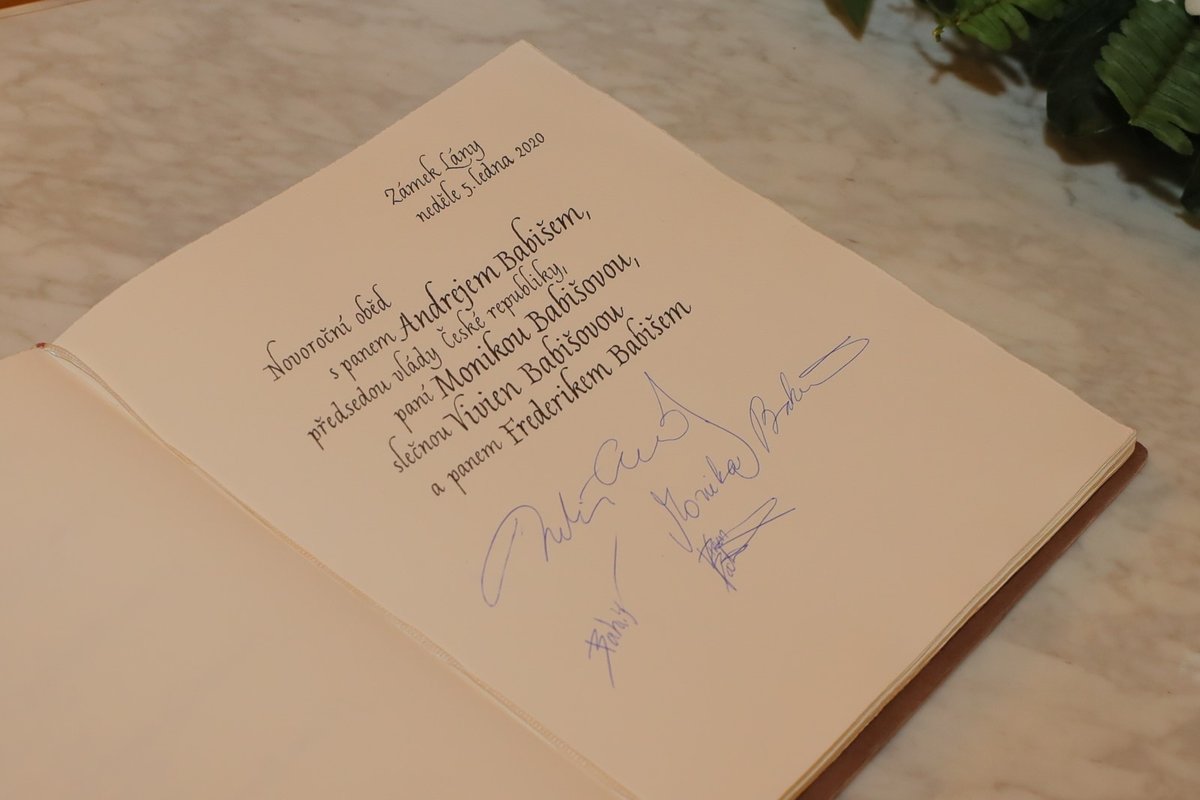 Zámek Lány
neděle 5. ledna 2020
Novoroční oběd
s panem Andrejem Babišem,
předsedou vlády České republiky,
paní Monikou Babišovou,
slečnou Vivien Babišovou
a panem Frederikem Babišem
Monika